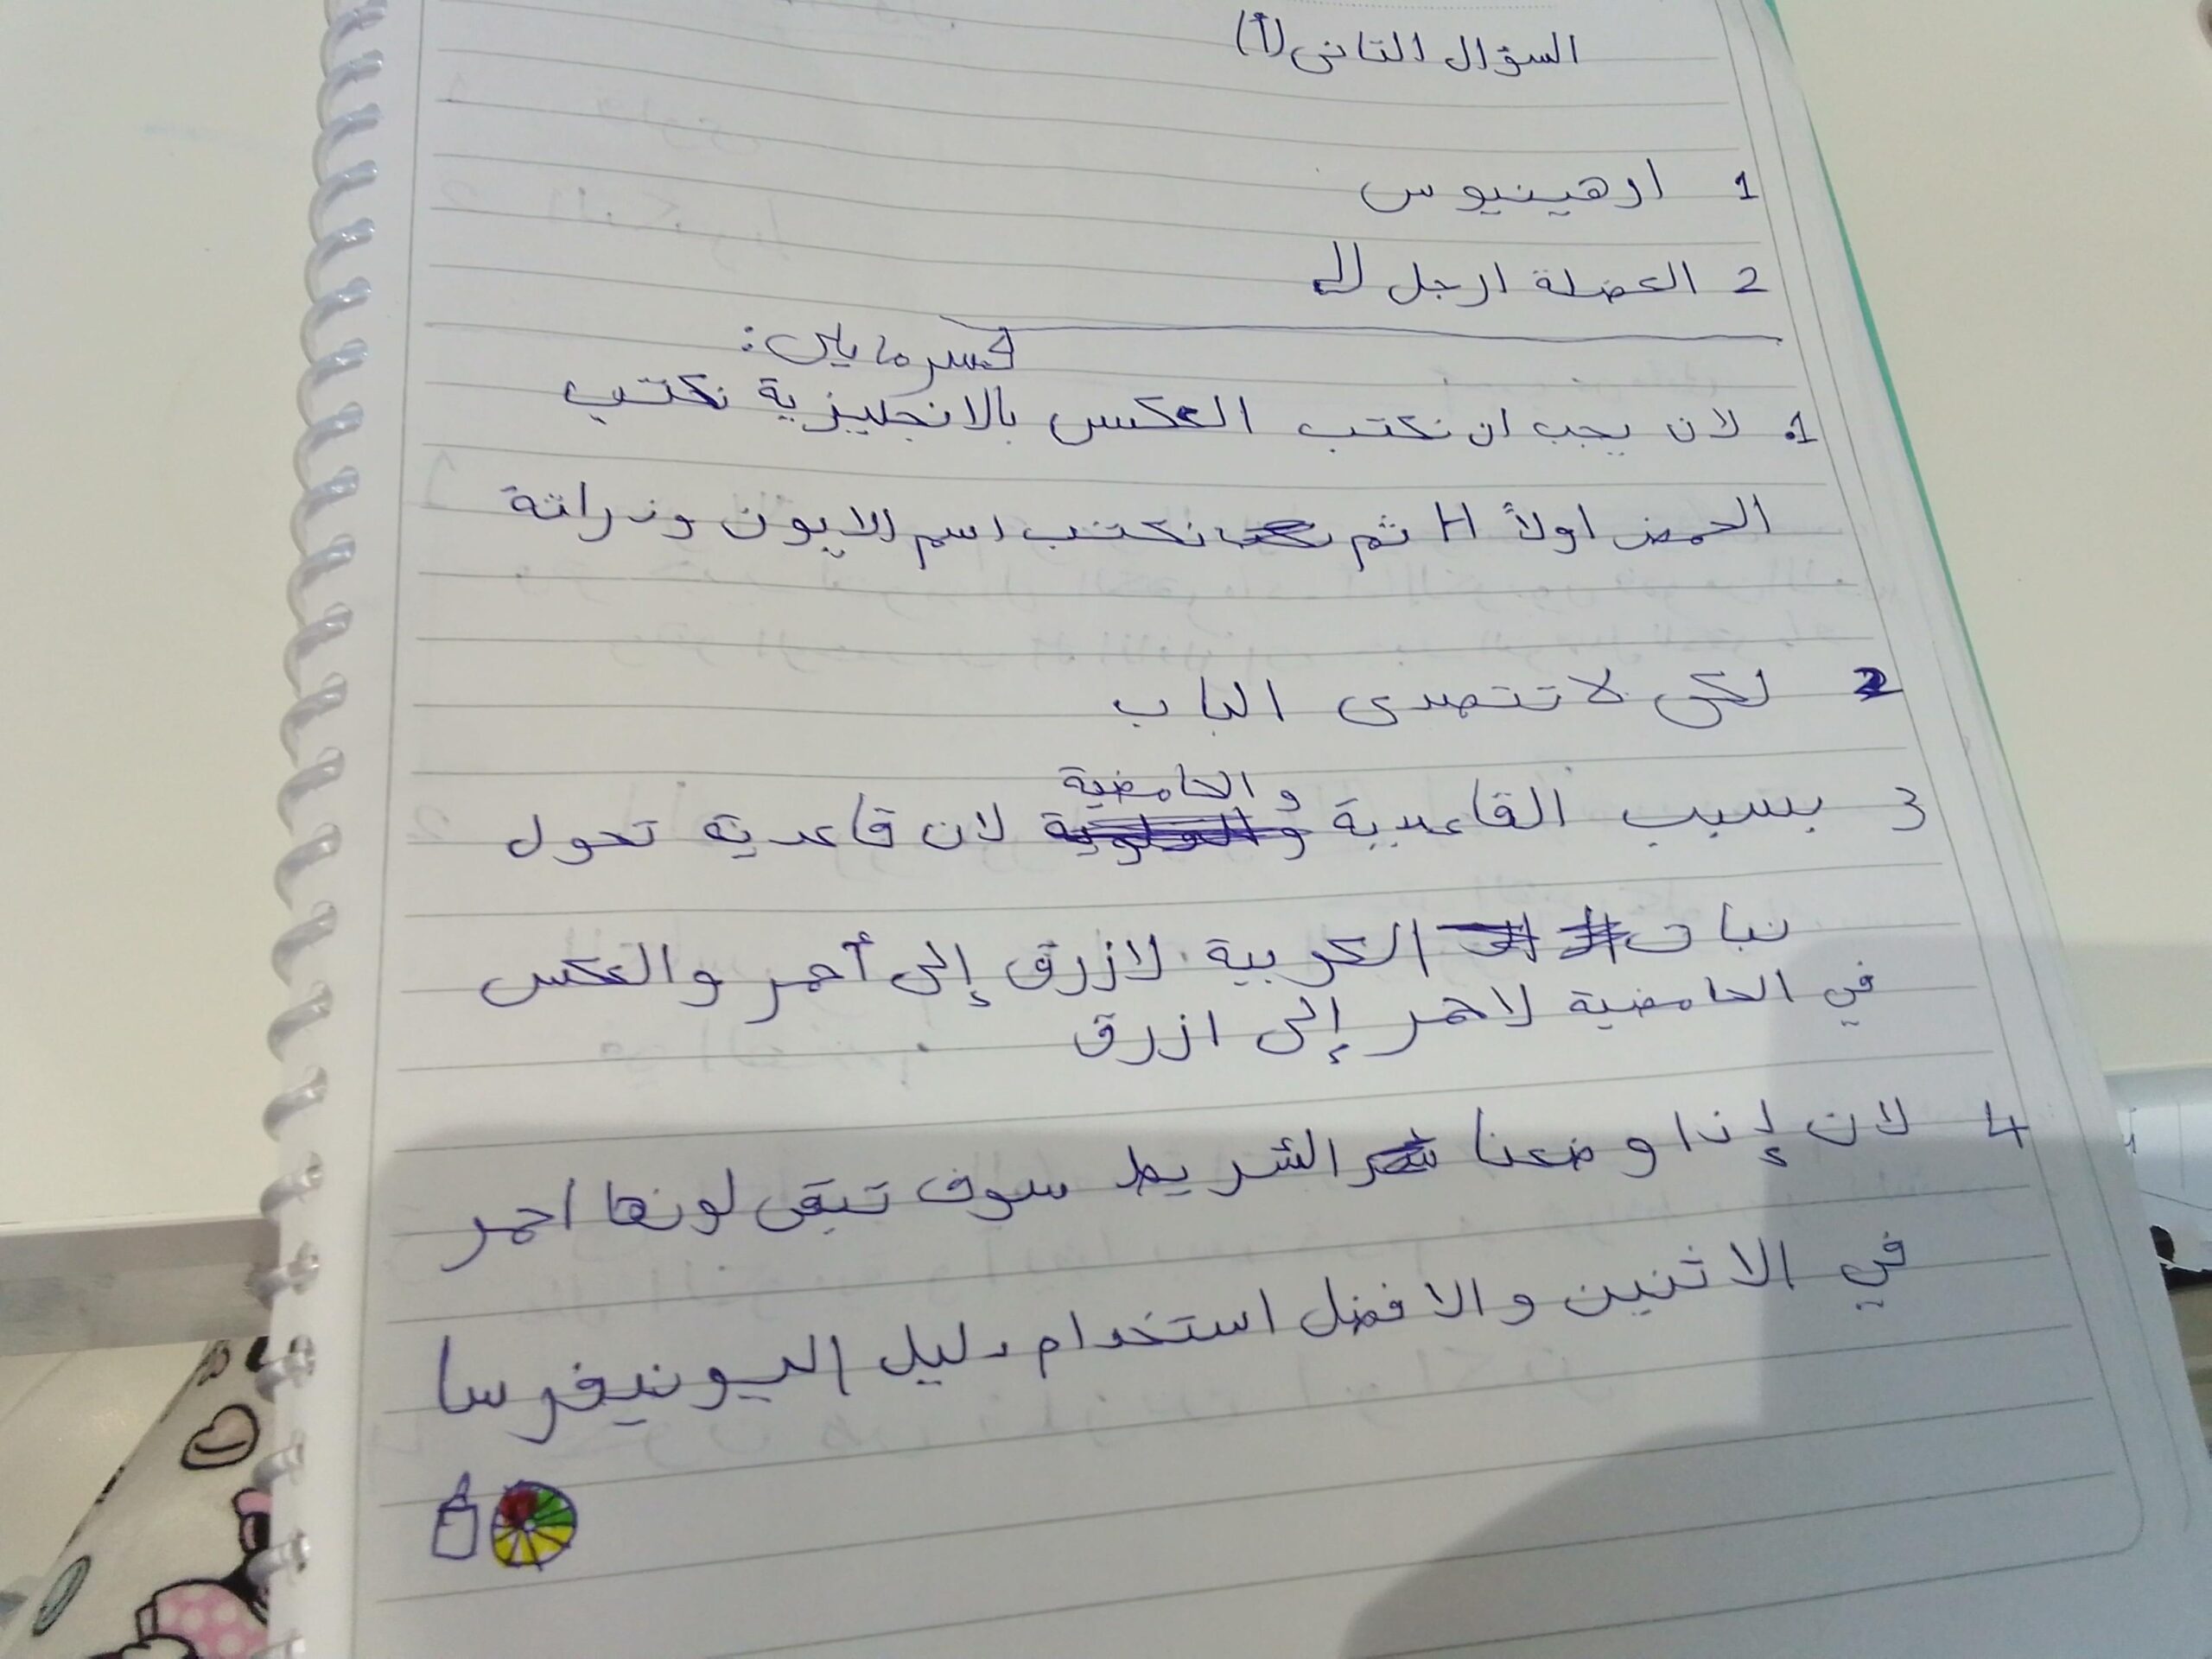 السؤال التانى (أ)
1 ارهينيوس
2 العضلة ارجل
فسر ما يلى:
1. لان يجب ان نكتب العكس بالانجليزية نكتب
الحمض اولاً H ثم نكتب اسم الايون وذراتة
2 لكى لا تتصدى الباب
3 بسبب القاعدية و الحامضية لان قاعدية تحول
نبات الكوبية لازرق إلى أحمر والعكس
في الحامضية لاحمر إلى ازرق
4 لان إذا وضعنا الشريط سوف تبقى لونها احمر
في الاثنين والافضل استخدام دليل اليونيفرسا